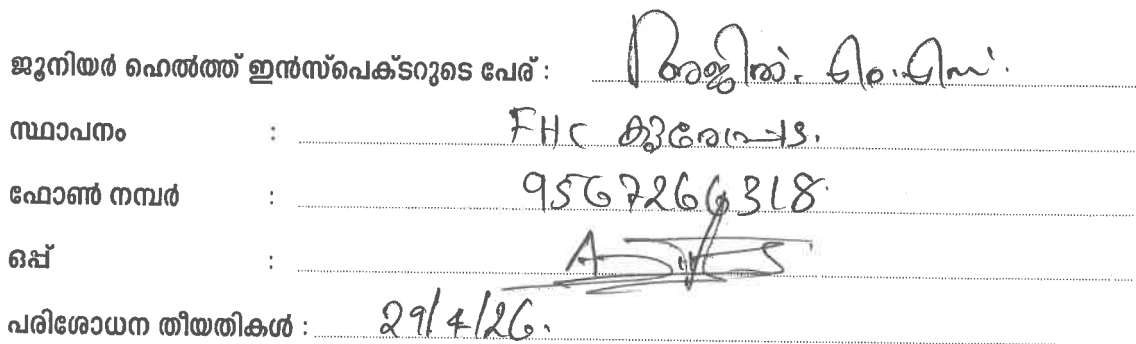 ജൂനിയർ ഹെൽത്ത് ഇൻസ്പെക്ടറുടെ പേര് : അജിത്. എം.എസ്.
സ്ഥാപനം : FHC
ഫോൺ നമ്പർ : 9567266318
ഒപ്പ് :
പരിശോധന തീയതികൾ : 29/4/26.